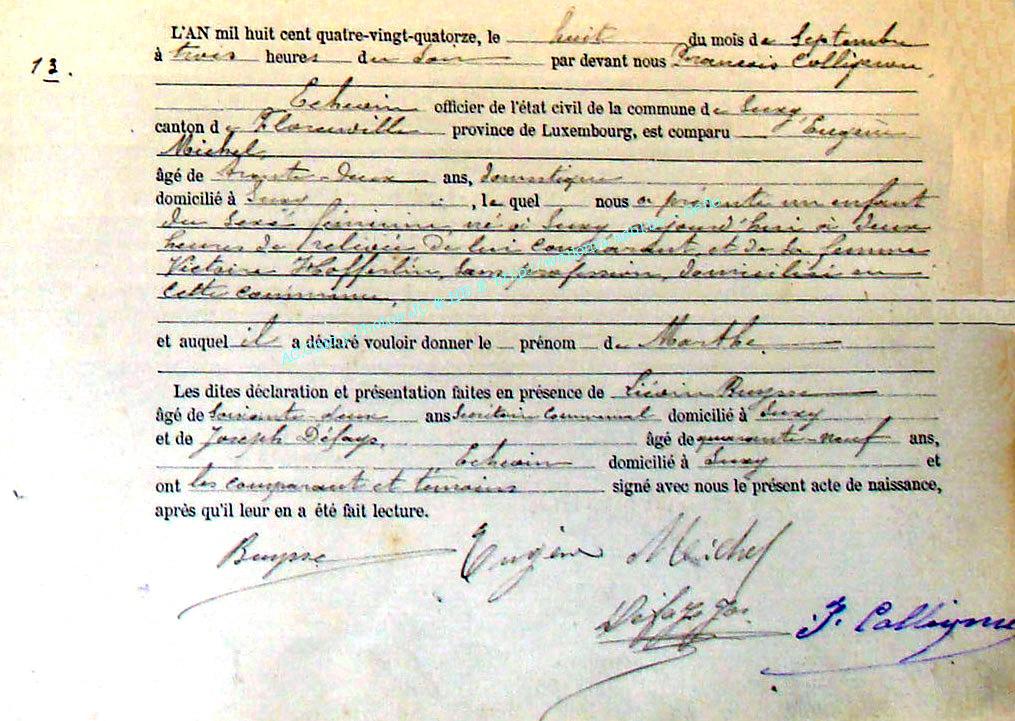 13.
L'AN mil huit cent quatre-vingt-quatorze, le huit du mois de Septembre
à trois heures du soir par devant nous François Collignon,
Echevin officier de l'état civil de la commune de Suxy,
canton de Florenville province de Luxembourg, est comparu Eugène
Michel,
âgé de trente-deux ans, domestique
domicilié à Suxy, lequel nous a présenté un enfant
du sexe féminin né à Suxy, aujourd'hui à deux
heures de relevée De lui comparant et de sa femme
Victoire Hofferlin, sans profession, domiciliée en
cette commune,
et auquel il a déclaré vouloir donner le prénom de Marthe
Les dites déclaration et présentation faites en présence de Buysse
âgé de soixante-deux ans Secrétaire Communal domicilié à Suxy
et de Joseph Défays, âgé de quarante-neuf ans,
Echevin domicilié à Suxy et
ont les comparant et témoins signé avec nous le présent acte de naissance,
après qu'il leur en a été fait lecture.
Buysse Eugène Michel
Défays Jos. F. Collignon